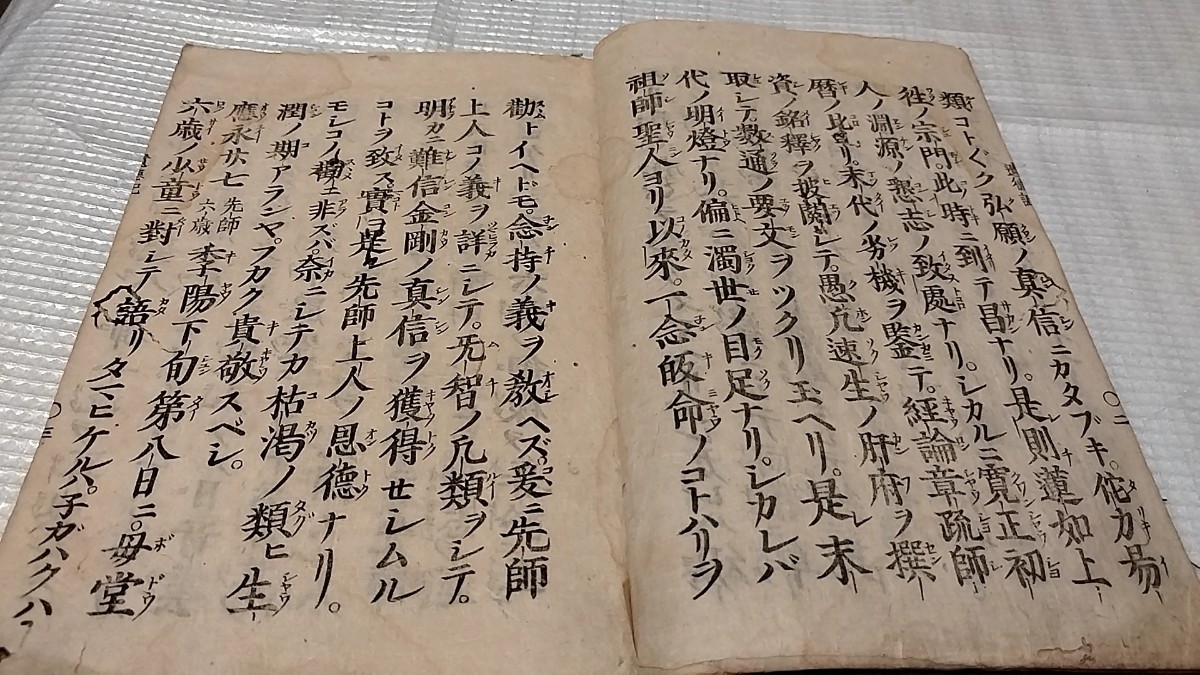 類コト〲ク弘願ノ真信ニカタブキ。佗力易
徃ノ宗門此ノ時ニ到テ昌ナリ。是則蓮如上
人ノ淵源ノ懇志ノ致處ナリ。シカルニ寛正初
暦ノ比ヨリ。末代ノ劣機ヲ鑒テ。經論章疏師
資ノ銘釋ヲ披閲シテ。愚凢速生ノ肝府ヲ撰
取シテ数通ノ要文ヲツクリ玉ヘリ。是レ末
代ノ明燈ナリ。偏ニ濁世ノ目足ナリ。シカレバ
祖師聖人ヨリ以來。一念皈命ノコトハリヲ
勸トイヘドモ。念持ノ義ヲ教ヘズ爰ニ先師
上人コノ義ヲ詳ニシテ。旡智ノ凢類ヲシテ。
明カニ難信金剛ノ真信ヲ獲得セシムル
コトヲ致ス實ニ是レ先師上人ノ恩徳ナリ。
モシコノ勸ニ非ズバ奈ニシテカ枯渇ノ類ヒ生
潤ノ期アランヤ。フカク貴敬スベシ。
應永廿七 先師六歳 季陽下旬第八日ニ。母堂
六歳ノ少童ニ對シテ語リタマヒケルハ。子ガハクハ